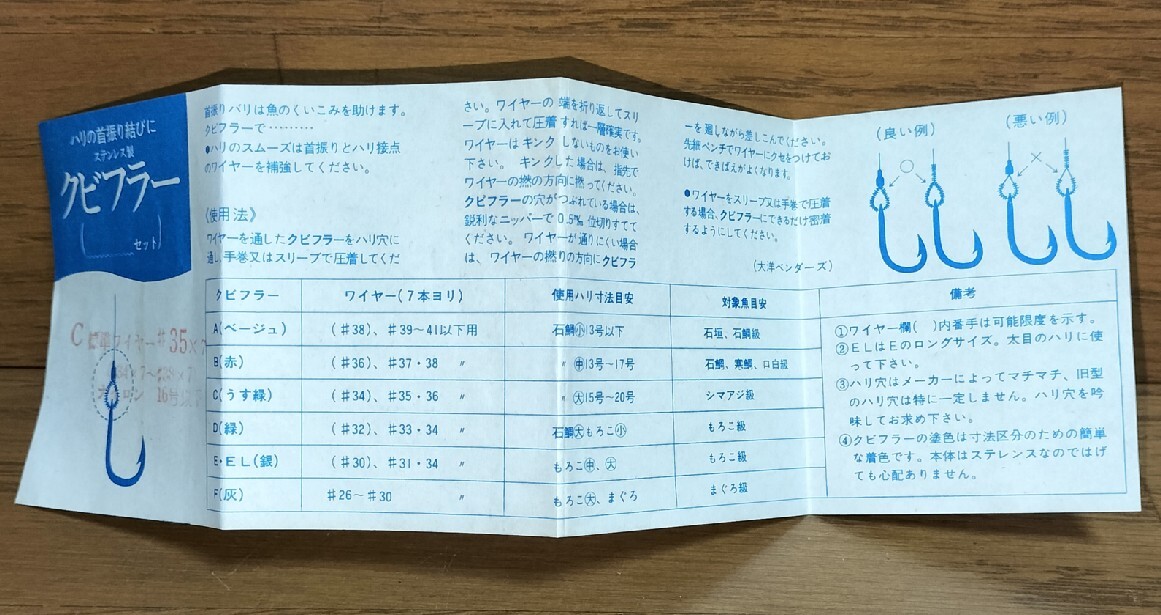 ハリの首振り結びに
ステンレス製
クビフラー
セット
C 標準ワイヤー#35×7
首振りバリは魚のくいこみを助けます。
クビフラーで………
●ハリのスムーズは首振りとハリ接点
のワイヤーを補強してください。
〈使用法〉
ワイヤーを通したクビフラーをハリ穴に
通し、手巻又はスリーブで圧着してくだ
さい。ワイヤーの端を折り返してスリ
ーブに入れて圧着すれば一層確実です。
ワイヤーはキンクしないものをお使い
下さい。キンクした場合は、指先で
ワイヤーの撚の方向に撚ってください。
クビフラーの穴がつぶれている場合は、
鋭利なニッパーで0.5㎜位切りすてて
ください。ワイヤーが通りにくい場合
は、ワイヤーの撚りの方向にクビフラ
ーを廻しながら差しこんでください。
先細ペンチでワイヤーにクセをつけてお
けば、できばえがよくなります。
●ワイヤーをスリーブ又は手巻で圧着
する場合、クビフラーにできるだけ密着
するようにしてください。
(大洋ベンダーズ)
(良い例)
(悪い例)
○
×
クビフラー ワイヤー(7本ヨリ) 使用ハリ寸法目安 対象魚目安
A(ベージュ) (#38)、#39〜41以下用 石鯛㊥13号以下 石垣、石鯛級
B(赤) (#36)、#37・38 〃 〃㊥13号〜17号 石鯛、寒鯛、口白級
C(うす緑) (#34)、#35・36 〃 〃㊛15号〜20号 シマアジ級
D(緑) (#32)、#33・34 〃 石鯛大もろこ小 もろこ級
E・EL(銀) (#30)、#31・34 〃 もろこ中、大 もろこ級
F(灰) #26〜#30 〃 もろこ大、まぐろ まぐろ級
備考
①ワイヤー欄( )内番手は可能限度を示す。
②ELはEのロングサイズ。太目のハリに使
って下さい。
③ハリ穴はメーカーによってマチマチ、旧型
のハリ穴は特に一定しません。ハリ穴を吟
味してお求め下さい。
④クビフラーの塗色は寸法区分のための簡単
な着色です。本体はステレンスなのではげ
ても心配ありません。